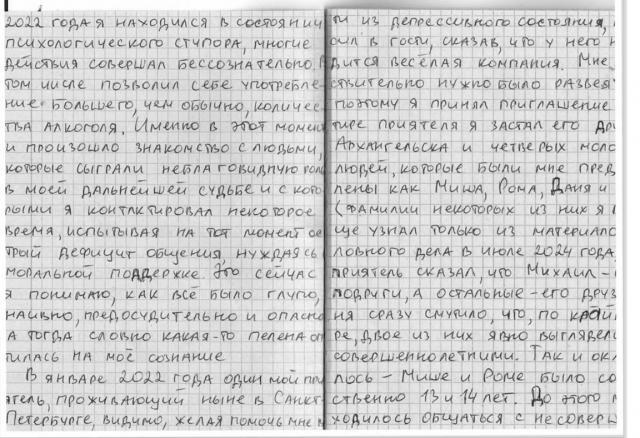 2022 года я находился в состоянии
психологического ступора, многие
действия совершал бессознательно. В
том числе позволил себе употребле-
ние большего, чем обычно, количес-
тва алкоголя. Именно в этот момен
и произошло знакомство с людьми,
которые сыграли неблаговидную роль
в моей дальнейшей судьбе и с кото-
рыми я контактировал некоторое
время, испытывая на тот момент ос
трый дефицит общения, нуждаясь
моральной поддержке. Это сейчас
я понимаю, как всё было глупо,
наивно, предосудительно и опасно
А тогда словно какая-то пелена оп
тилась на моё сознание
В январе 2022 года один мой при
ятель, проживающий ныне в Санкт-
Петербурге, видимо, желая помочь мне
ти из депрессивного состояния,
сил в гости, сказав, что у него н
дится весёлая компания. Мне
ствительно нужно было развея
поэтому я принял приглашение
тире приятеля я застал его дру
Архангельска и четверых моло
людей, которые были мне пред
лены как Миша, Рома, Даня и
(фамилии некоторых из них я
ще узнал только из материало
ловного дела в июле 2024 года
приятель сказал, что Михаил -
подруги, а остальные - его друз
ня сразу смутило, что, по край
ре, двое из них явно выглядел
совершеннолетними. Так и ока
лось - Мише и Роме было со
ственно 13 и 14 лет. До этого м
ходилось общаться с несоверш